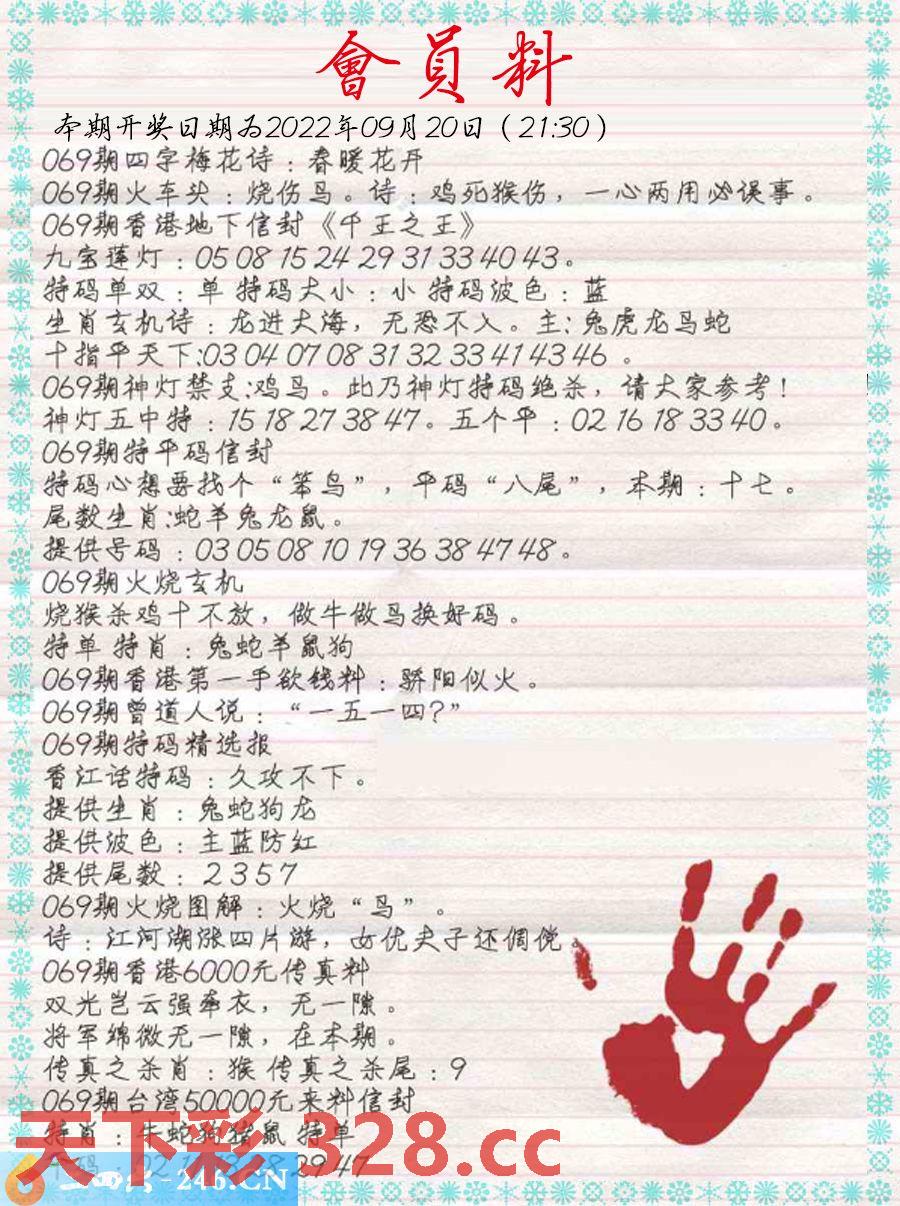 會員料
本期开奖日期为2022年09月20日（21:30）
069期四字梅花诗：春暖花开
069期火车头：烧伤鸟。诗：鸡死猴伤，一心两用必误事。
069期香港地下信封《千王之王》
九宝莲灯：05 08 15 24 29 31 33 40 43。
特码单双：单 特码大小：小 特码波色：蓝
生肖玄机诗：龙进大海，无恐不入。主：兔虎龙马蛇
十指平天下:03 04 07 08 31 32 33 41 43 46 。
069期神灯禁支:鸡马。此乃神灯特码绝杀，请大家参考！
神灯五中特：15 18 27 38 47。五个平：02 16 18 33 40。
069期特平码信封
特码心想要找个“笨鸟”，平码“八尾”，本期：十七。
尾数生肖:蛇羊兔龙鼠。
提供号码：03 05 08 10 19 36 38 47 48。
069期火烧玄机
烧猴杀鸡十不放，做牛做马换好码。
特单 特肖：兔蛇羊鼠狗
069期香港第一手欲钱料：骄阳似火。
069期曾道人说：“一五一四？”
069期特码精选报
香江话特码：久攻不下。
提供生肖：兔蛇狗龙
提供波色：主蓝防红
提供尾数：2 3 5 7
069期火烧图解：火烧“鸟”。
诗：江河湖涨四片游，女优夫子还倜傥。
069期香港6000元传真料
双光岂云强牵衣，无一隙。
将军绵微无一隙，在本期。
传真之杀肖：猴 传真之杀尾：9
069期台湾50000元来料信封
特肖：牛蛇狗猪鼠 特单
天下彩 328.cc
29 47
246.CN